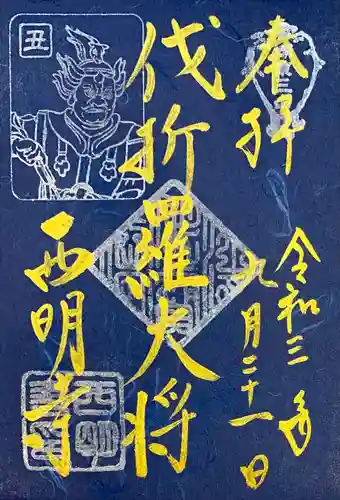 奉拝
令和三年
九月二十一日
伐折羅大将
西明寺
丑